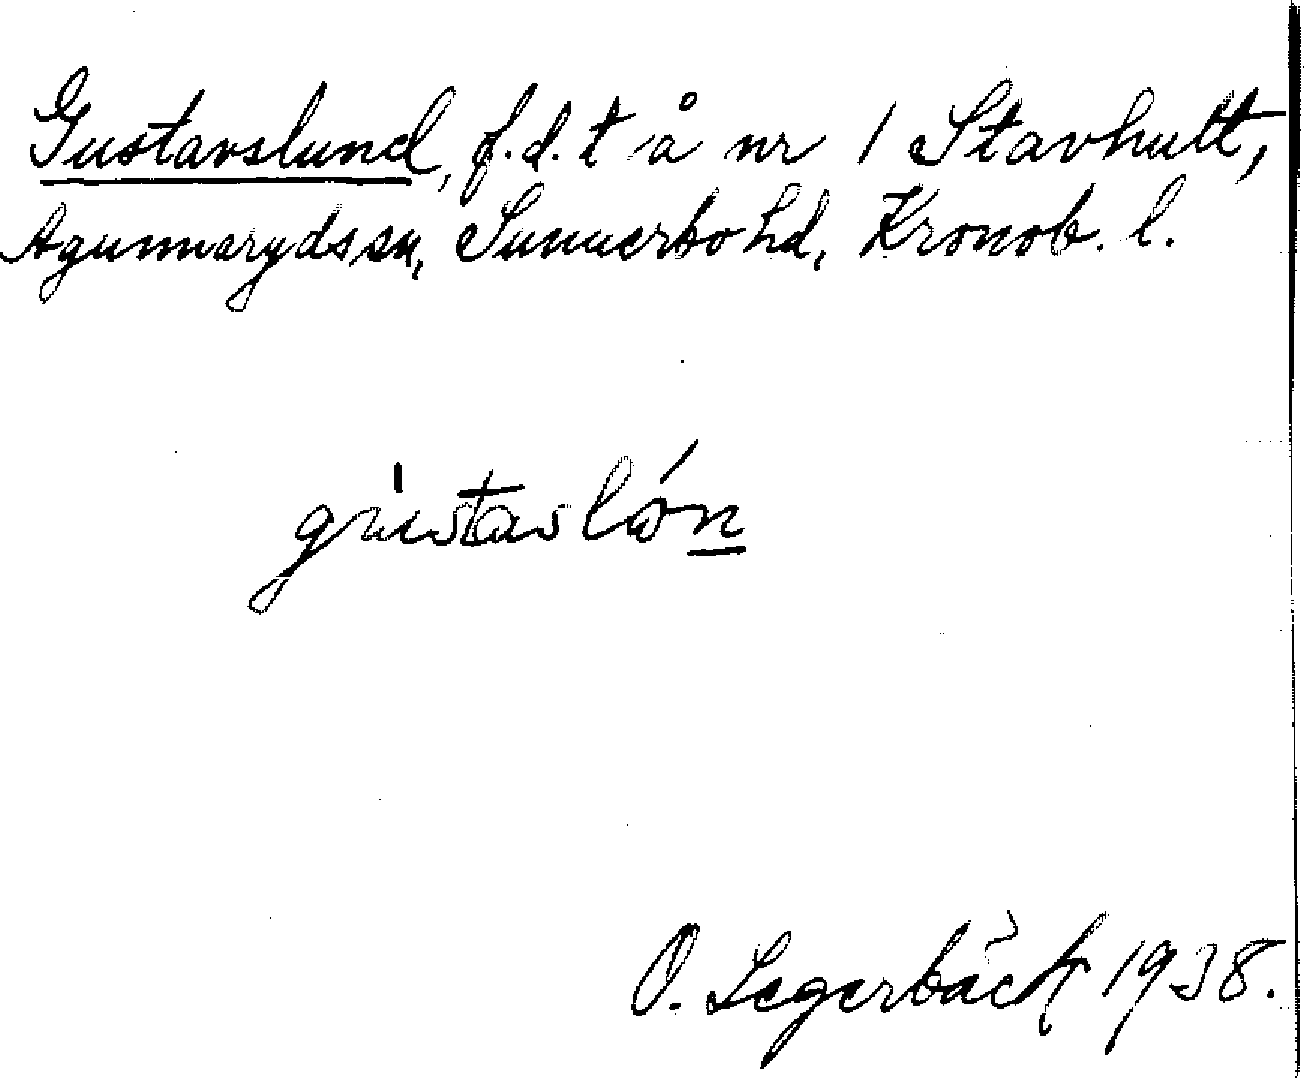 Gustavslund, f.d. t å nr 1 Stavhult,
Agunnaryds sn, Sunnerbo hd, Kronob. l.
gùstavslón
O. Legerbäck 1938.